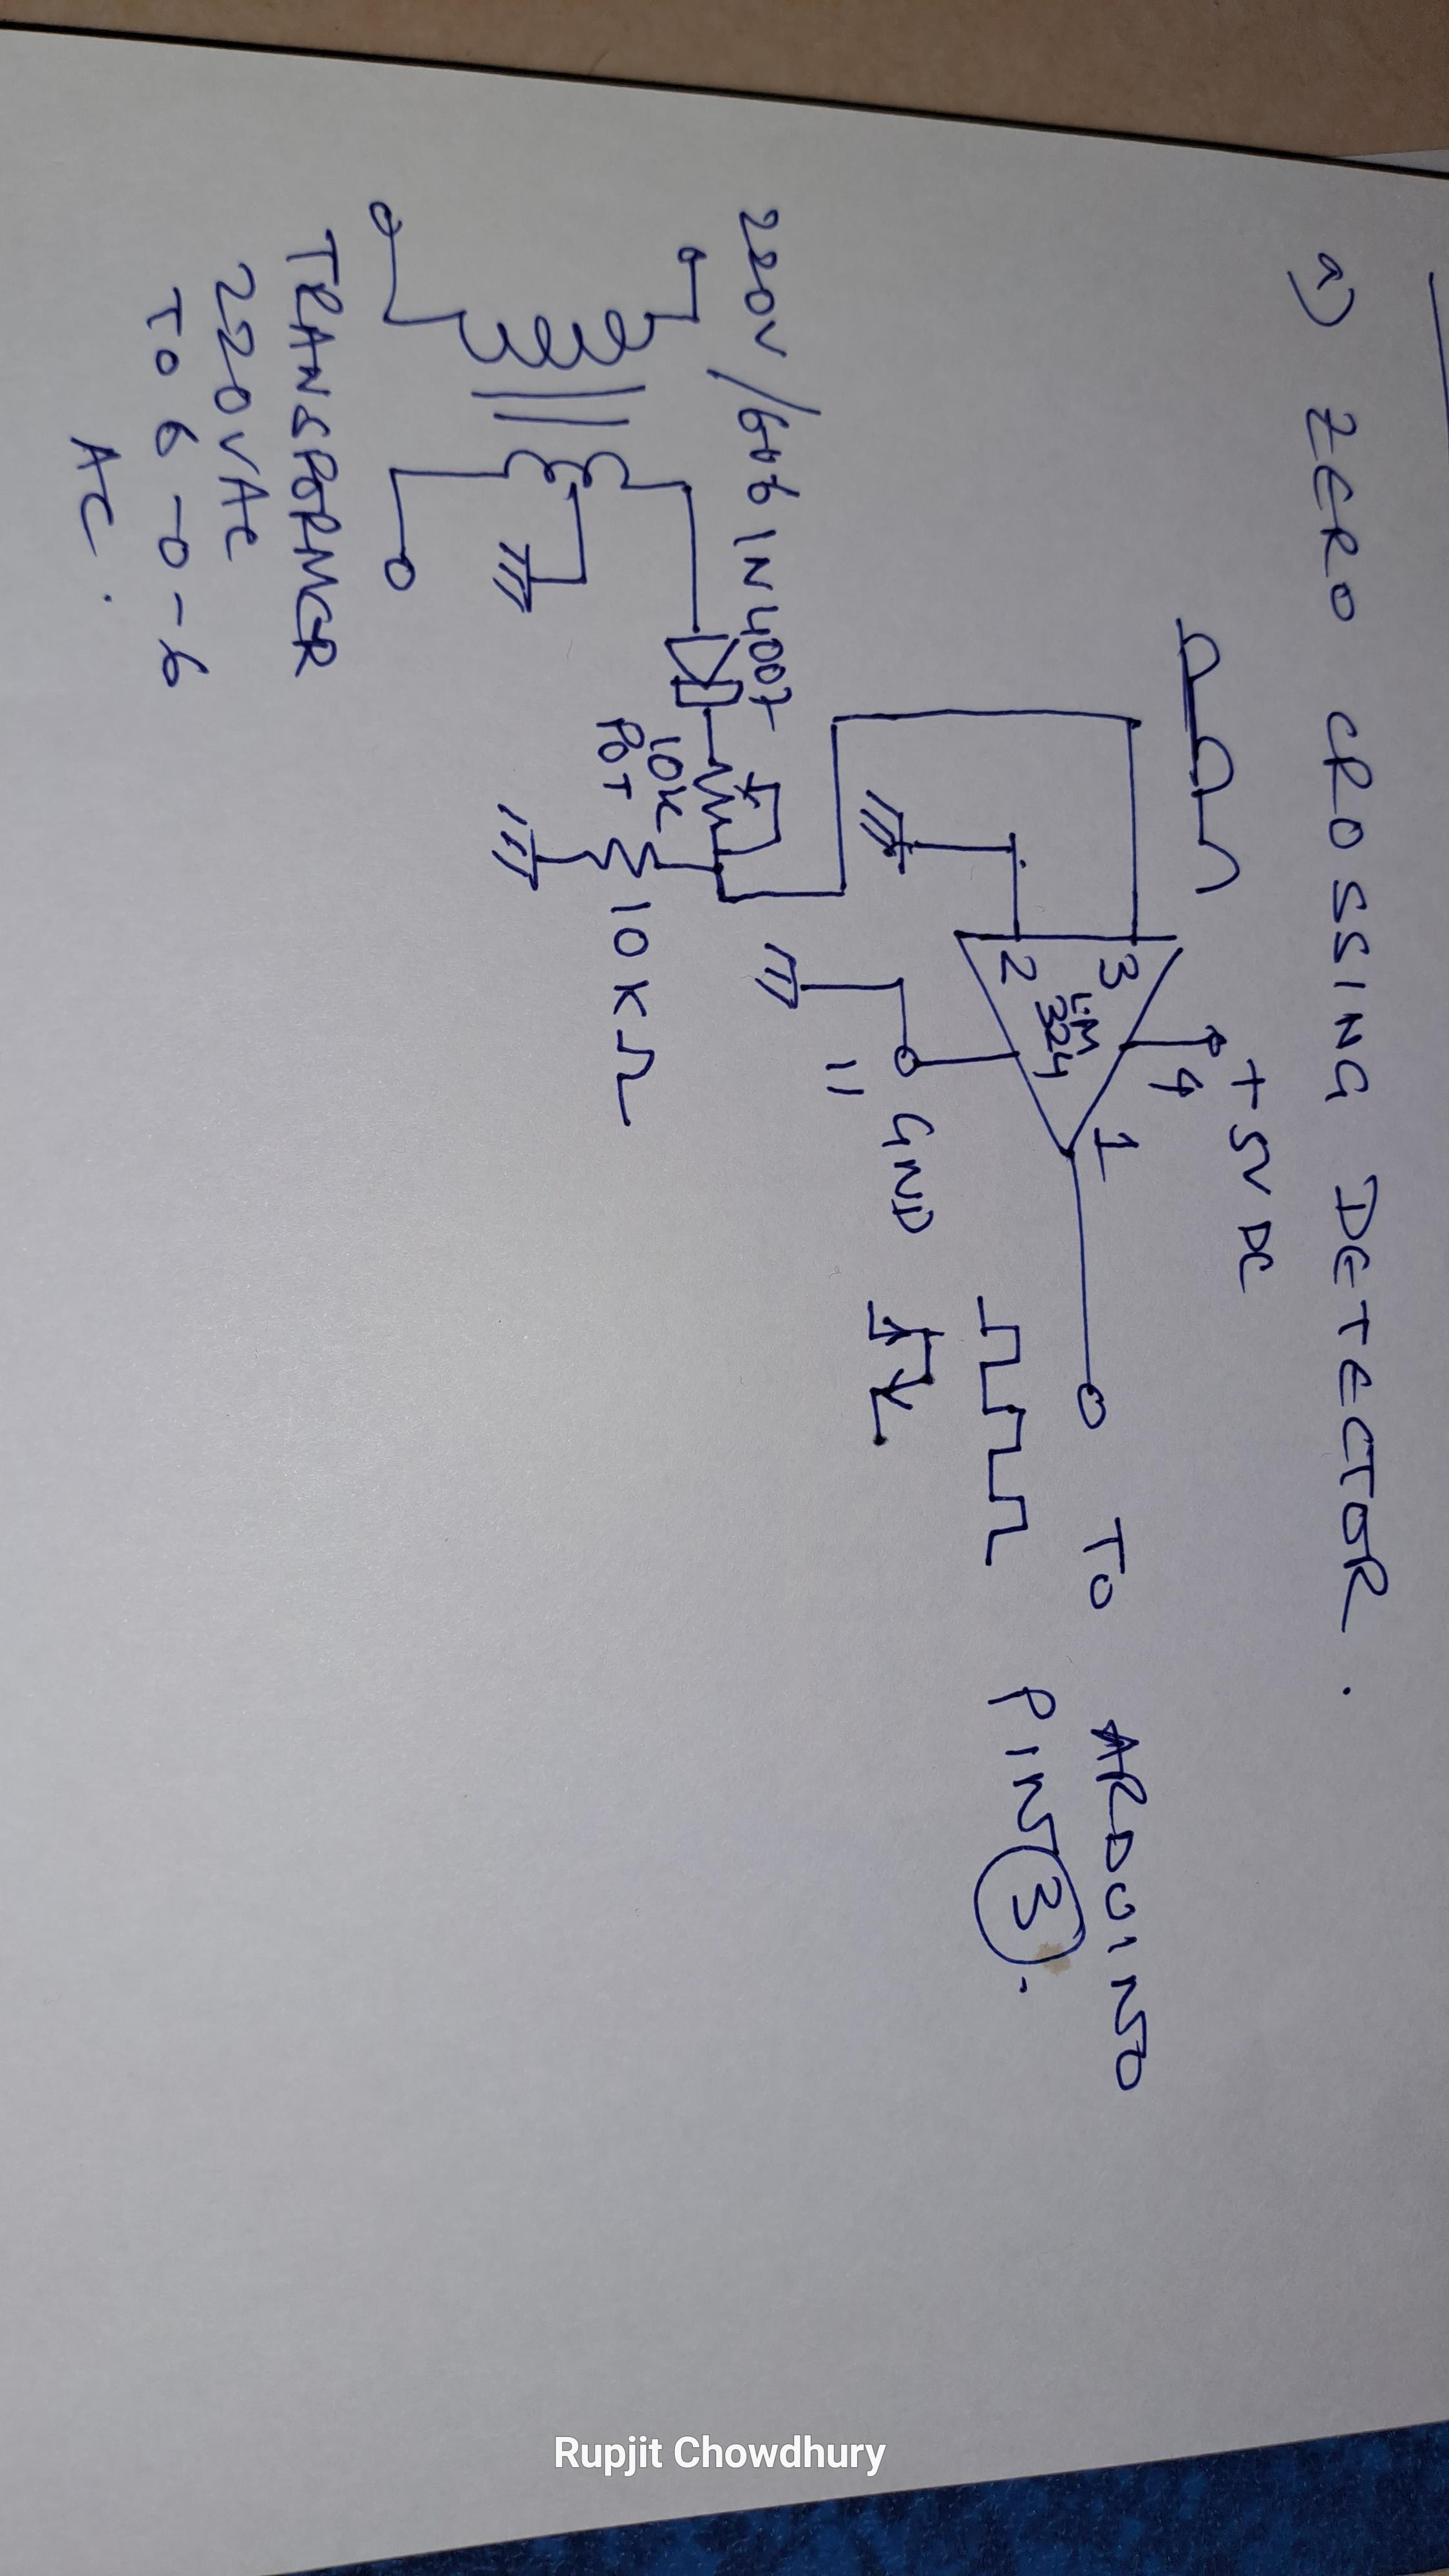 a) ZERO CROSSING DETECTOR.
+5V DC
4
3
2
LM
324
1
TO ARDUINO
PIN 3.
11 GND
220V/606
1N4007
10K
POT
10KΩ
TRANSFORMER
220VAC
TO 6-0-6
AC.
Rupjit Chowdhury